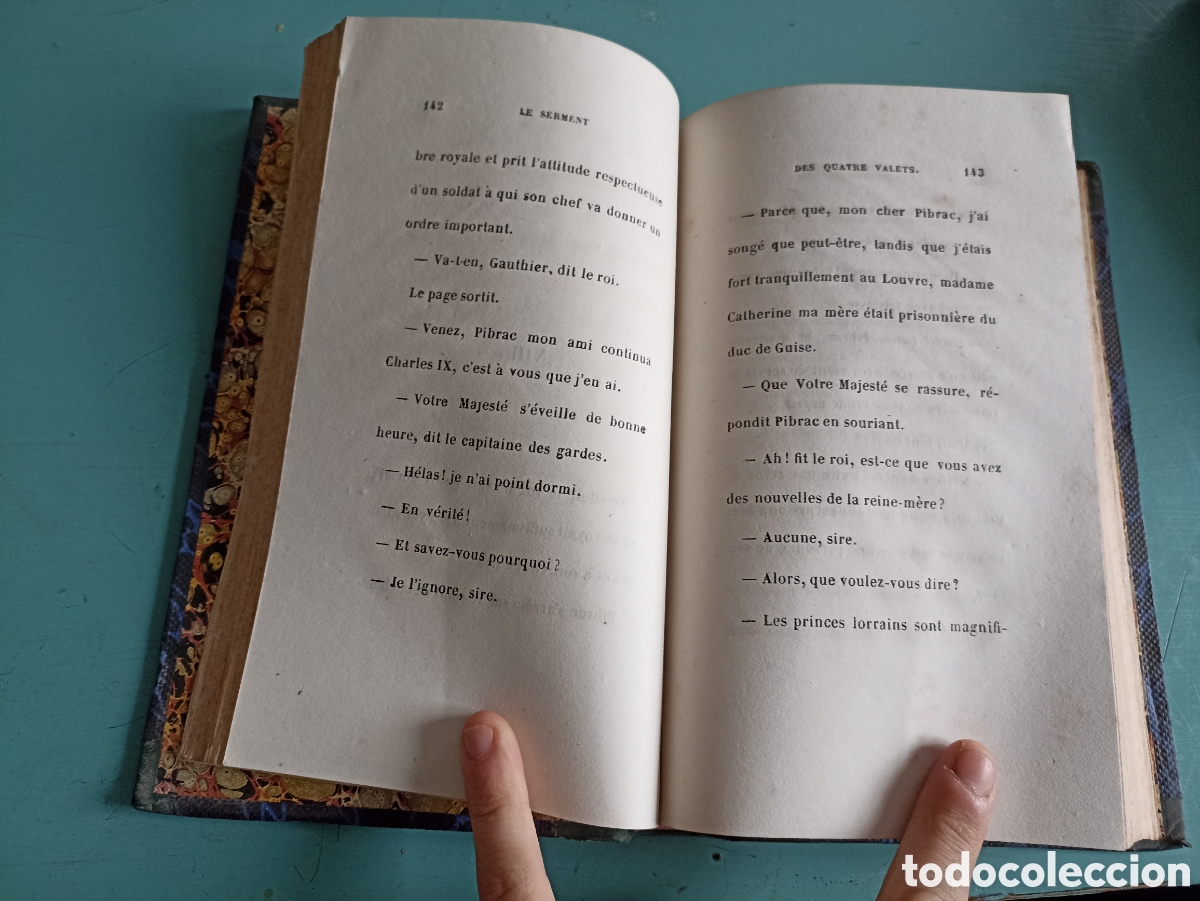 142
LE SERMENT
bre royale et prit l'attitude respectueuse
d'un soldat à qui son chef va donner un
ordre important.
— Va-t-en, Gauthier, dit le roi.
Le page sortit.
— Venez, Pibrac mon ami continua
Charles IX, c'est à vous que j'en ai.
— Votre Majesté s'éveille de bonne
heure, dit le capitaine des gardes.
— Hélas! je n'ai point dormi.
— En vérité!
— Et savez-vous pourquoi?
— Je l'ignore, sire.
DES QUATRE VALETS.
143
— Parce que, mon cher Pibrac, j'ai
songé que peut-être, tandis que j'étais
fort tranquillement au Louvre, madame
Catherine ma mère était prisonnière du
duc de Guise.
— Que Votre Majesté se rassure, ré-
pondit Pibrac en souriant.
— Ah! fit le roi, est-ce que vous avez
des nouvelles de la reine-mère?
— Aucune, sire.
— Alors, que voulez-vous dire?
— Les princes lorrains sont magnifi-
todocoleccion